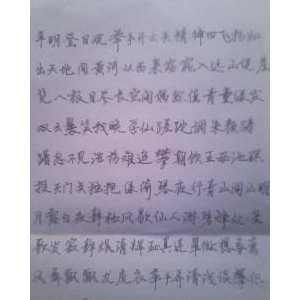 平明登日观举手开云关精神四飞扬如
出天地间黄河从西来窈窕入远山凭崖
览八极目尽长空闲偶然值青童绿发
双云鬟笑我晚学仙蹉跎凋朱颜踌
躇忽不见浩荡难追攀朝饮王母池暝
投天门关独抱绮夜行青山间山明
月露白夜静松风歇仙人游碧峰处处笙
歌发寂静娱清辉玉真连翠微想象鸾
凤舞飘飘龙虎衣举手弄清浅误攀织